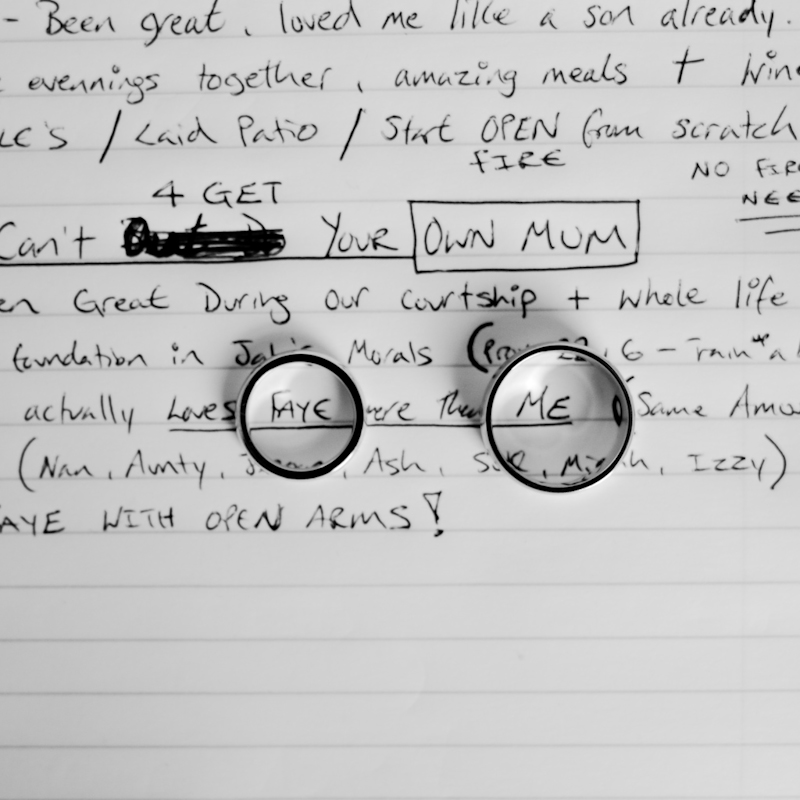 - Been great, loved me like a son already.
evennings together, amazing meals +
/ Laid Patio / Start OPEN from scratch
FIRE
NO
4 GET
Can't YOUR OWN MUM
Great During our courtship + whole life
foundation in Morals (Prov 22:6 - Train
actually Loves FAYE more Then ME Same
(Nan, Aunty, , Ash, , , Izzy)
FAYE WITH OPEN ARMS!